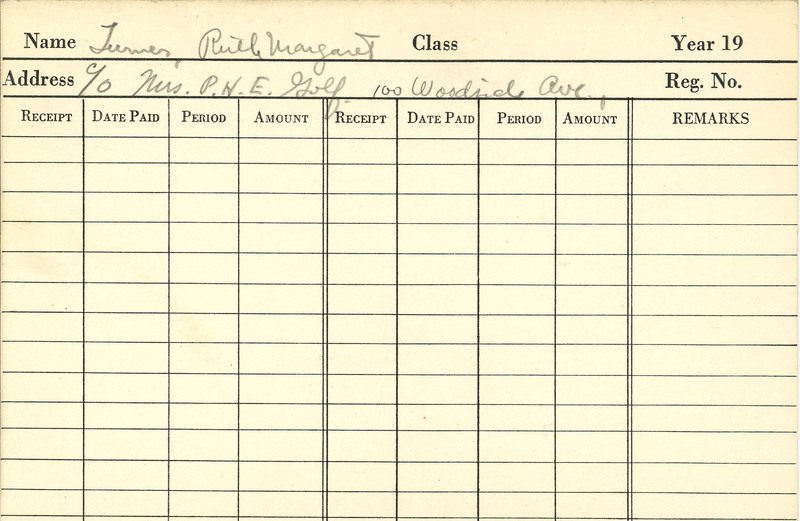 Name Turner, Ruth Margaret Class Year 19
Address c/o Mrs. P.H.E. Golf 100 Woodside Ave.,
Reg. No.
RECEIPT DATE PAID PERIOD AMOUNT RECEIPT DATE PAID PERIOD AMOUNT REMARKS